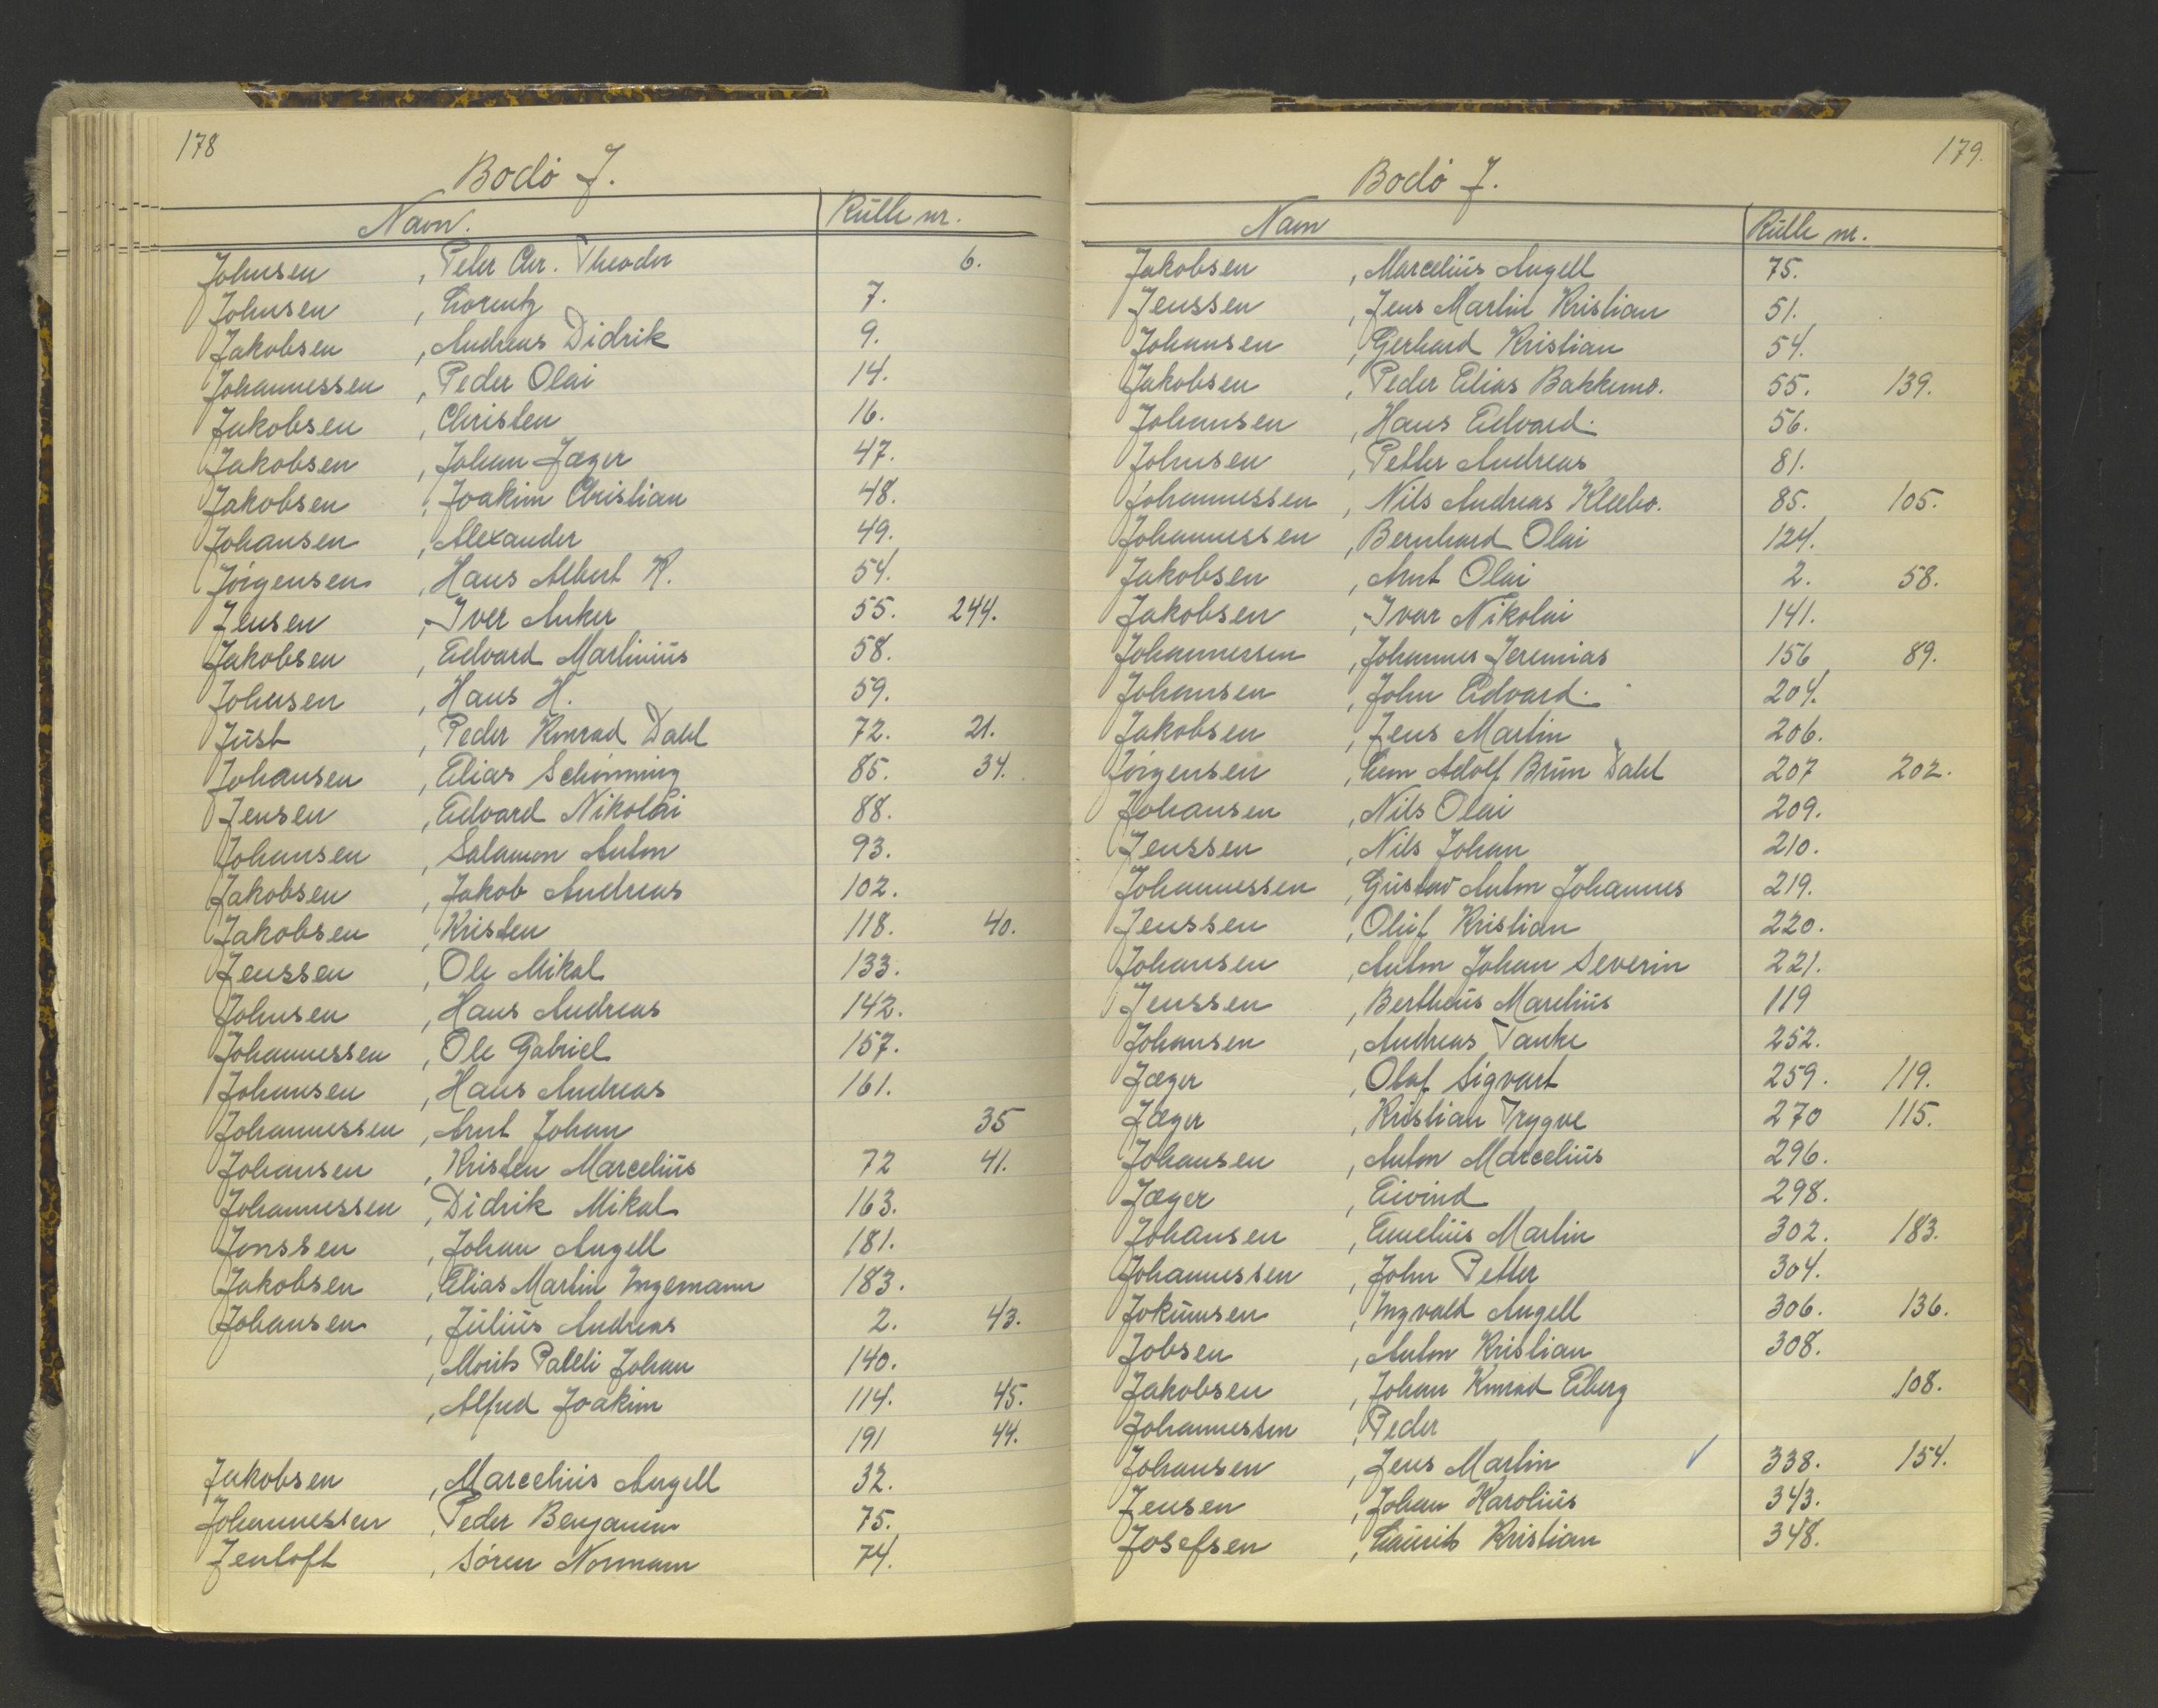 178
Bodø J.
Navn. Rulle nr.
Johnsen , Peter Chr. Theodor 6.
Johnsen , Lorentz 7.
Jakobsen , Andreas Didrik 9.
Johannessen , Peder Olai 14.
Jakobsen , Christen 16.
Jakobsen , Johan Jæger 47.
Jakobsen , Joakim Christian 48.
Johansen , Alexander 49.
Jørgensen , Hans Albert K. 54.
Jensen , Iver Anker 55. 244.
Jakobsen , Edvard Martinius 58.
Johnsen , Hans H. 59.
Just , Peder Konrad Dahl 72. 21.
Johansen , Elias Schønning 85. 34.
Jensen , Edvard Nikolai 88.
Johansen , Salamon Anton 93.
Jakobsen , Jakob Andreas 102.
Jakobsen , Kristen 118. 40.
Jenssen , Ole Mikal 133.
Johnsen , Hans Andreas 142.
Johannessen , Ole Gabriel 157.
Johansen , Hans Andreas 161.
Johannessen , Arnt Johan 35
Johansen , Kristen Marcelius 72 41.
Johannessen , Didrik Mikal 163.
Jonssen , Johan Angell 181.
Jakobsen , Elias Martin Ingemann 183.
Johansen , Julius Andreas 2. 43.
, Morits Johan 140.
, Alfred Joakim 114. 45.
191 44.
Jakobsen , Marcelius Angell 32.
Johannessen , Peder Benjamin 75.
Jentoft , Søren Normann 74.
179.
Bodø J.
Navn Rulle nr.
Jakobsen , Marcelius Angell 75.
Jenssen , Jens Martin Kristian 51.
Johansen , Gerhard Kristian 54.
Jakobsen , Peder Elias Bakkemo. 55. 139.
Johansen , Hans Edvard. 56.
Johnsen , Petter Andreas 81.
Johannessen , Nils Andreas Kleebo. 85. 105.
Johannessen , Bernhard Olai 124.
Jakobsen , Arnt Olai 2. 58.
Jakobsen , Ivar Nikolai 141.
Johannessen , Johannes Jeremias 156 89.
Johansen , John Edvard. 204.
Jakobsen , Jens Martin 206.
Jørgensen , Adolf Brun Dahl 207 202.
Johansen , Nils Olai 209.
Jenssen , Nils Johan 210.
Johannessen , Gustav Anton Johannes 219.
Jenssen , Oluf Kristian 220.
Johansen , Anton Johan Severin 221.
Jenssen , Bertheus Marelius 119
Johansen , Andreas Tanke 252.
Jæger , Olaf Sigvart 259. 119.
Jæger , Kristian Trygve 270 115.
Johansen , Anton Marcelius 296.
Jæger , Eivind 298.
Johansen , Emelius Martin 302. 183.
Johannessen , John Petter 304.
Jokumsen , Ingvald Angell 306. 136.
Jobsen , Anton Kristian 308.
Jakobsen , Johan Konrad Eiberg 108.
Johannessen , Peder
Johansen , Jens Martin ✓ 338. 154.
Jensen , Johan Karolius 343.
Josefsen , Laurits Kristian 348.